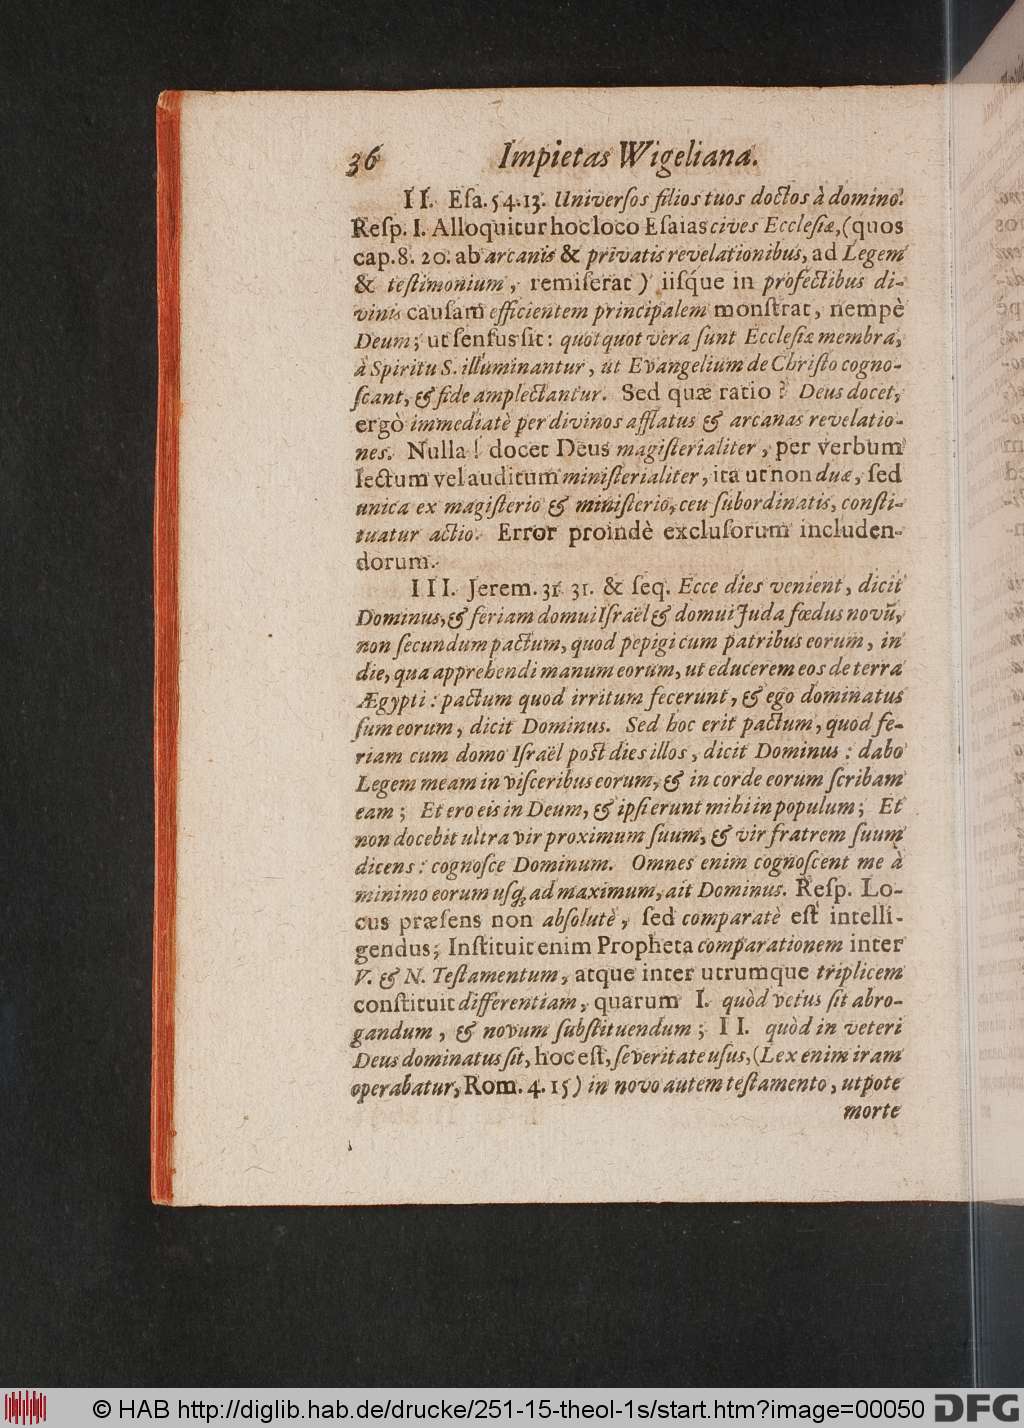 36 Impietas Wigeliana.
II. Eſa. 54. 13. Univerſos filios tuos doctos à domino.
Reſp. I. Alloquitur hoc loco Eſaias cives Eccleſiæ, (quos
cap. 8. 20. ab arcanis & privatis revelationibus, ad Legem
& teſtimonium, remiſerat) iiſq́ue in profectibus di-
vinis cauſam efficientem principalem monſtrat, nempè
Deum; ut ſenſus ſit: quotquot vera ſunt Eccleſiæ membra,
à Spiritu S. illuminantur, ut Evangelium de Chriſto cogno-
ſcant, & fide amplectantur. Sed quæ ratio? Deus docet,
ergò immediatè per divinos afflatus & arcanas revelatio-
nes. Nulla! docet Deus magiſterialiter, per verbum
lectum vel auditum miniſterialiter, ita ut non duæ, ſed
unica ex magiſterio & miniſterio, ceu ſubordinatis, conſti-
tuatur actio. Error proindè excluſorum includen-
dorum.
III. Jerem. 31. 31. & ſeq. Ecce dies venient, dicit
Dominus, & feriam domui Iſraël & domui Juda fœdus novũ,
non ſecundum pactum, quod pepigi cum patribus eorum, in
die, qua apprehendi manum eorum, ut educerem eos de terra
Ægypti: pactum quod irritum fecerunt, & ego dominatus
ſum eorum, dicit Dominus. Sed hoc erit pactum, quod fe-
riam cum domo Iſraël poſt dies illos, dicit Dominus: dabo
Legem meam in viſceribus eorum, & in corde eorum ſcribam
eam; Et ero eis in Deum, & ipſi erunt mihi in populum; Et
non docebit ultra vir proximum ſuum, & vir fratrem ſuum
dicens: cognoſce Dominum. Omnes enim cognoſcent me à
minimo eorum uſq; ad maximum, ait Dominus. Reſp. Lo-
cus præſens non abſolutè, ſed comparatè eſt intelli-
gendus; Inſtituit enim Propheta comparationem inter
V. & N. Teſtamentum, atque inter utrumque triplicem
conſtituit differentiam, quarum I. quòd vetus ſit abro-
gandum, & novum ſubſtituendum; II. quòd in veteri
Deus dominatus ſit, hoc eſt, ſeveritate uſus, (Lex enim iram
operabatur, Rom. 4. 15) in novo autem teſtamento, utpote
morte
© HAB http://diglib.hab.de/drucke/251-15-theol-1s/start.htm?image=00050
DFG